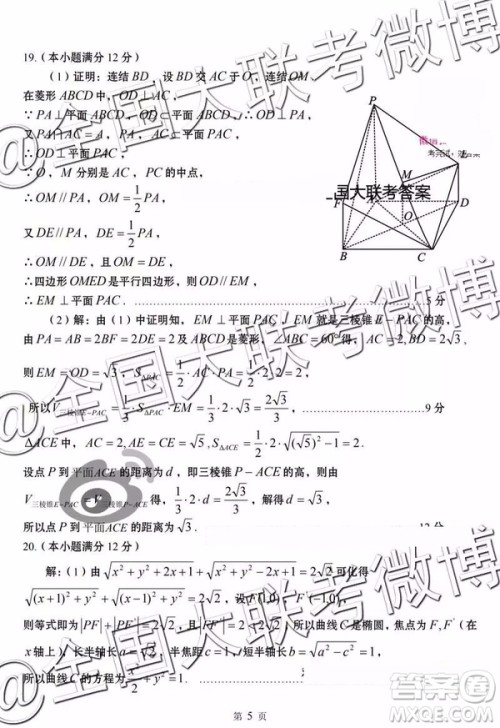 19.(本小题满分12分)
(1)证明:连结BD,设BD交AC于O,连结OM
在菱形ABCD中,OD⊥AC,
∵PA⊥平面ABCD,OD⊂平面ABCD,
∴OD⊥PA,
又PA∩AC=A,PA,AC⊂平面PAC,
∴OD⊥平面PAC,
∵O,M分别是AC,PC的中点,
∴OM//PA,OM=1/2PA,
又DE//PA,DE=1/2PA,
∴OM//DE,且OM=DE,
∴四边形OMED是平行四边形,则OD//EM,
∴EM⊥平面PAC.……5分
P
M
E
F
A
D
O
B
C
国大联考答案
(2)解:由(1)中证明知,EM⊥平面PAC,则EM就是三棱锥E-PAC的高,
由PA=AB=2BF=2DE=2及ABCD是菱形,∠ABC=60°得,AC=2,BD=2√3,
则EM=OD=1/2BD=√3,S△PAC=1/2·2·2=2,
所以V三棱锥E-PAC=1/3·S△PAC·EM=1/3·2·√3=2√3/3,……9分
△ACE中,AC=2,AE=CE=√5,S△ACE=1/2·2·√((√5)²-1²)=2,
设点P到平面ACE的距离为d,即三棱锥P-ACE的高,由
V三棱锥E-PAC=V三棱锥P-ACE得,1/3·2·d=2√3/3,d=√3,
所以点P到平面ACE的距离为√3.……12分
20.(本小题满分12分)
解:(1)由√(x²+y²+2x+1)+√(x²+y²-2x+1)=2√2可化得
√((x+1)²+y²)+√((x-1)²+y²)=2√2,设F(1,0),F'(-1,0),
则等式即为|PF|+|PF'|=2√2,而|FF'|=2<2√2,所以曲线C是椭圆,焦点为F,F'(在
x轴上),长半轴长a=√2,半焦距c=1,短半轴长b=√(a²-c²)=1,
所以曲线C的方程为x²/2+y²=1.
第 5 页
@全国大联考微博
@全国大联考微博
@全国大联考微博
答案圈
MXQE.COM